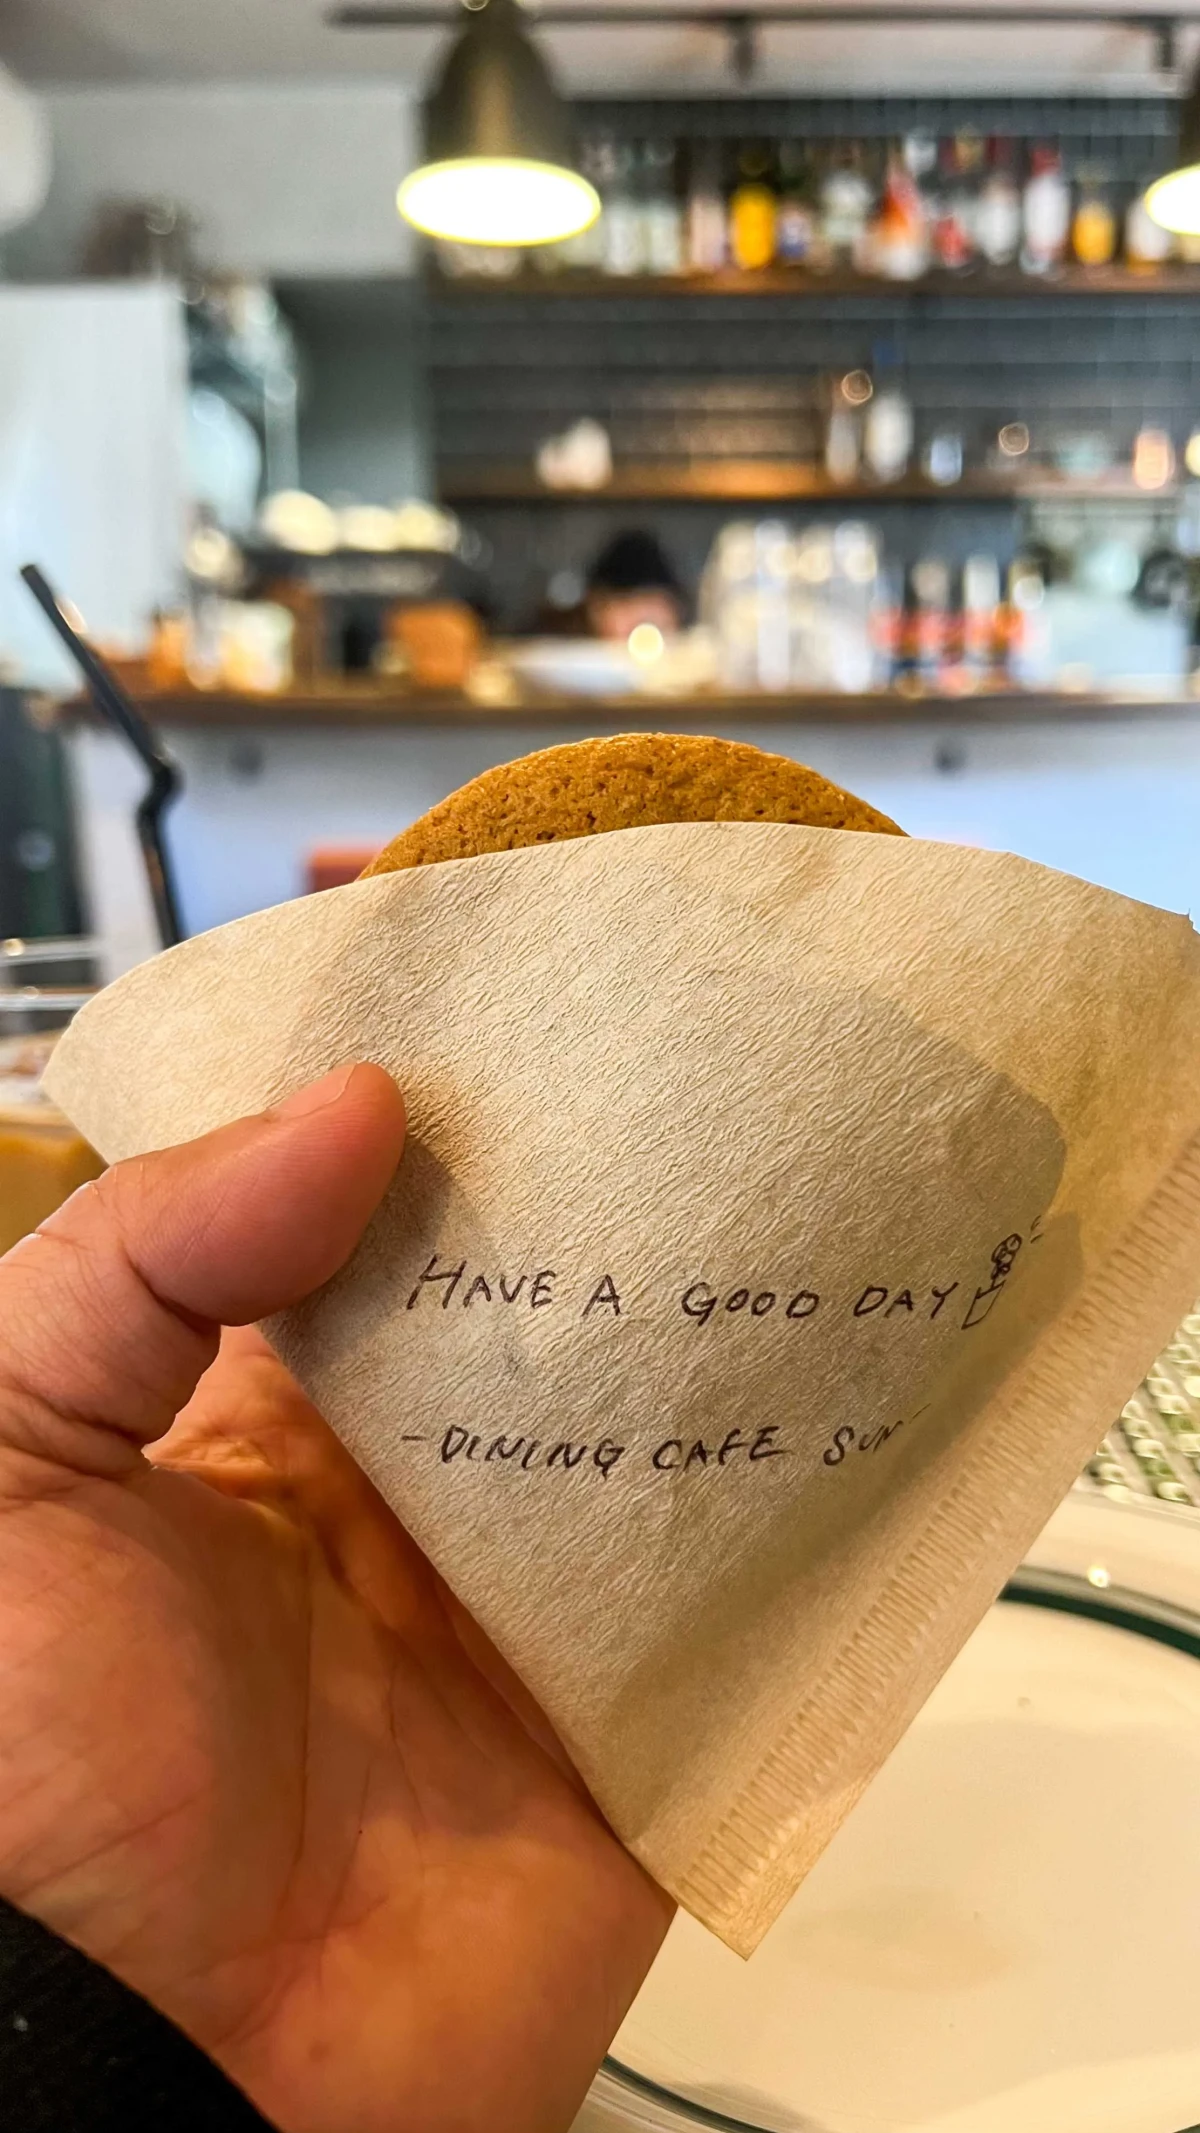 HAVE A GOOD DAY
-DINING CAFE SUN-